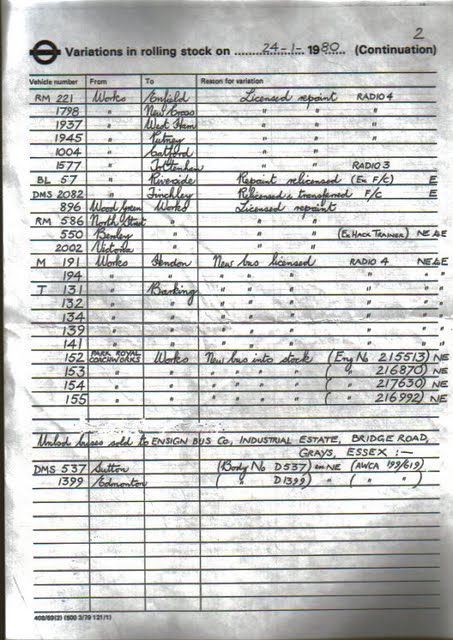 2
Variations in rolling stock on 24-1- 1980 (Continuation)
Vehicle number From To Reason for variation
RM 221 Works Enfield Licensed repaint RADIO 4
1798 " New Cross " "
1937 " West Ham " "
1945 " Putney " "
1004 " Catford " "
1577 " Tottenham " " RADIO 3
BL 57 " Riverside Repaint relicensed (Ex F/C) E
DMS 2082 " Finchley Relicensed & transferred F/C E
896 Wood Green Works Licensed repaint
RM 586 North Street " " "
550 Bexley " " " (Ex HACK TRAINER) NE & E
2002 Victoria " " "
M 191 Works Hendon New bus licensed RADIO 4 NE&E
194 " " " " " " " "
T 131 " Barking " " " " "
132 " " " " " " "
134 " " " " " " "
139 " " " " " " "
141 " " " " " " "
152 PARK ROYAL COACHWORKS Works New bus into stock (Eng No 215513) NE
153 " " " " " " ( " 216870) NE
154 " " " " " " ( " 217630) NE
155 " " " " " " ( " 216992) NE
Unlicd buses sold to ENSIGN BUS Co, INDUSTRIAL ESTATE, BRIDGE ROAD,
GRAYS, ESSEX :—
DMS 537 Sutton (Body No D537) NE (AWCA 199/619)
1399 Edmonton ( " D1399) " ( " " )